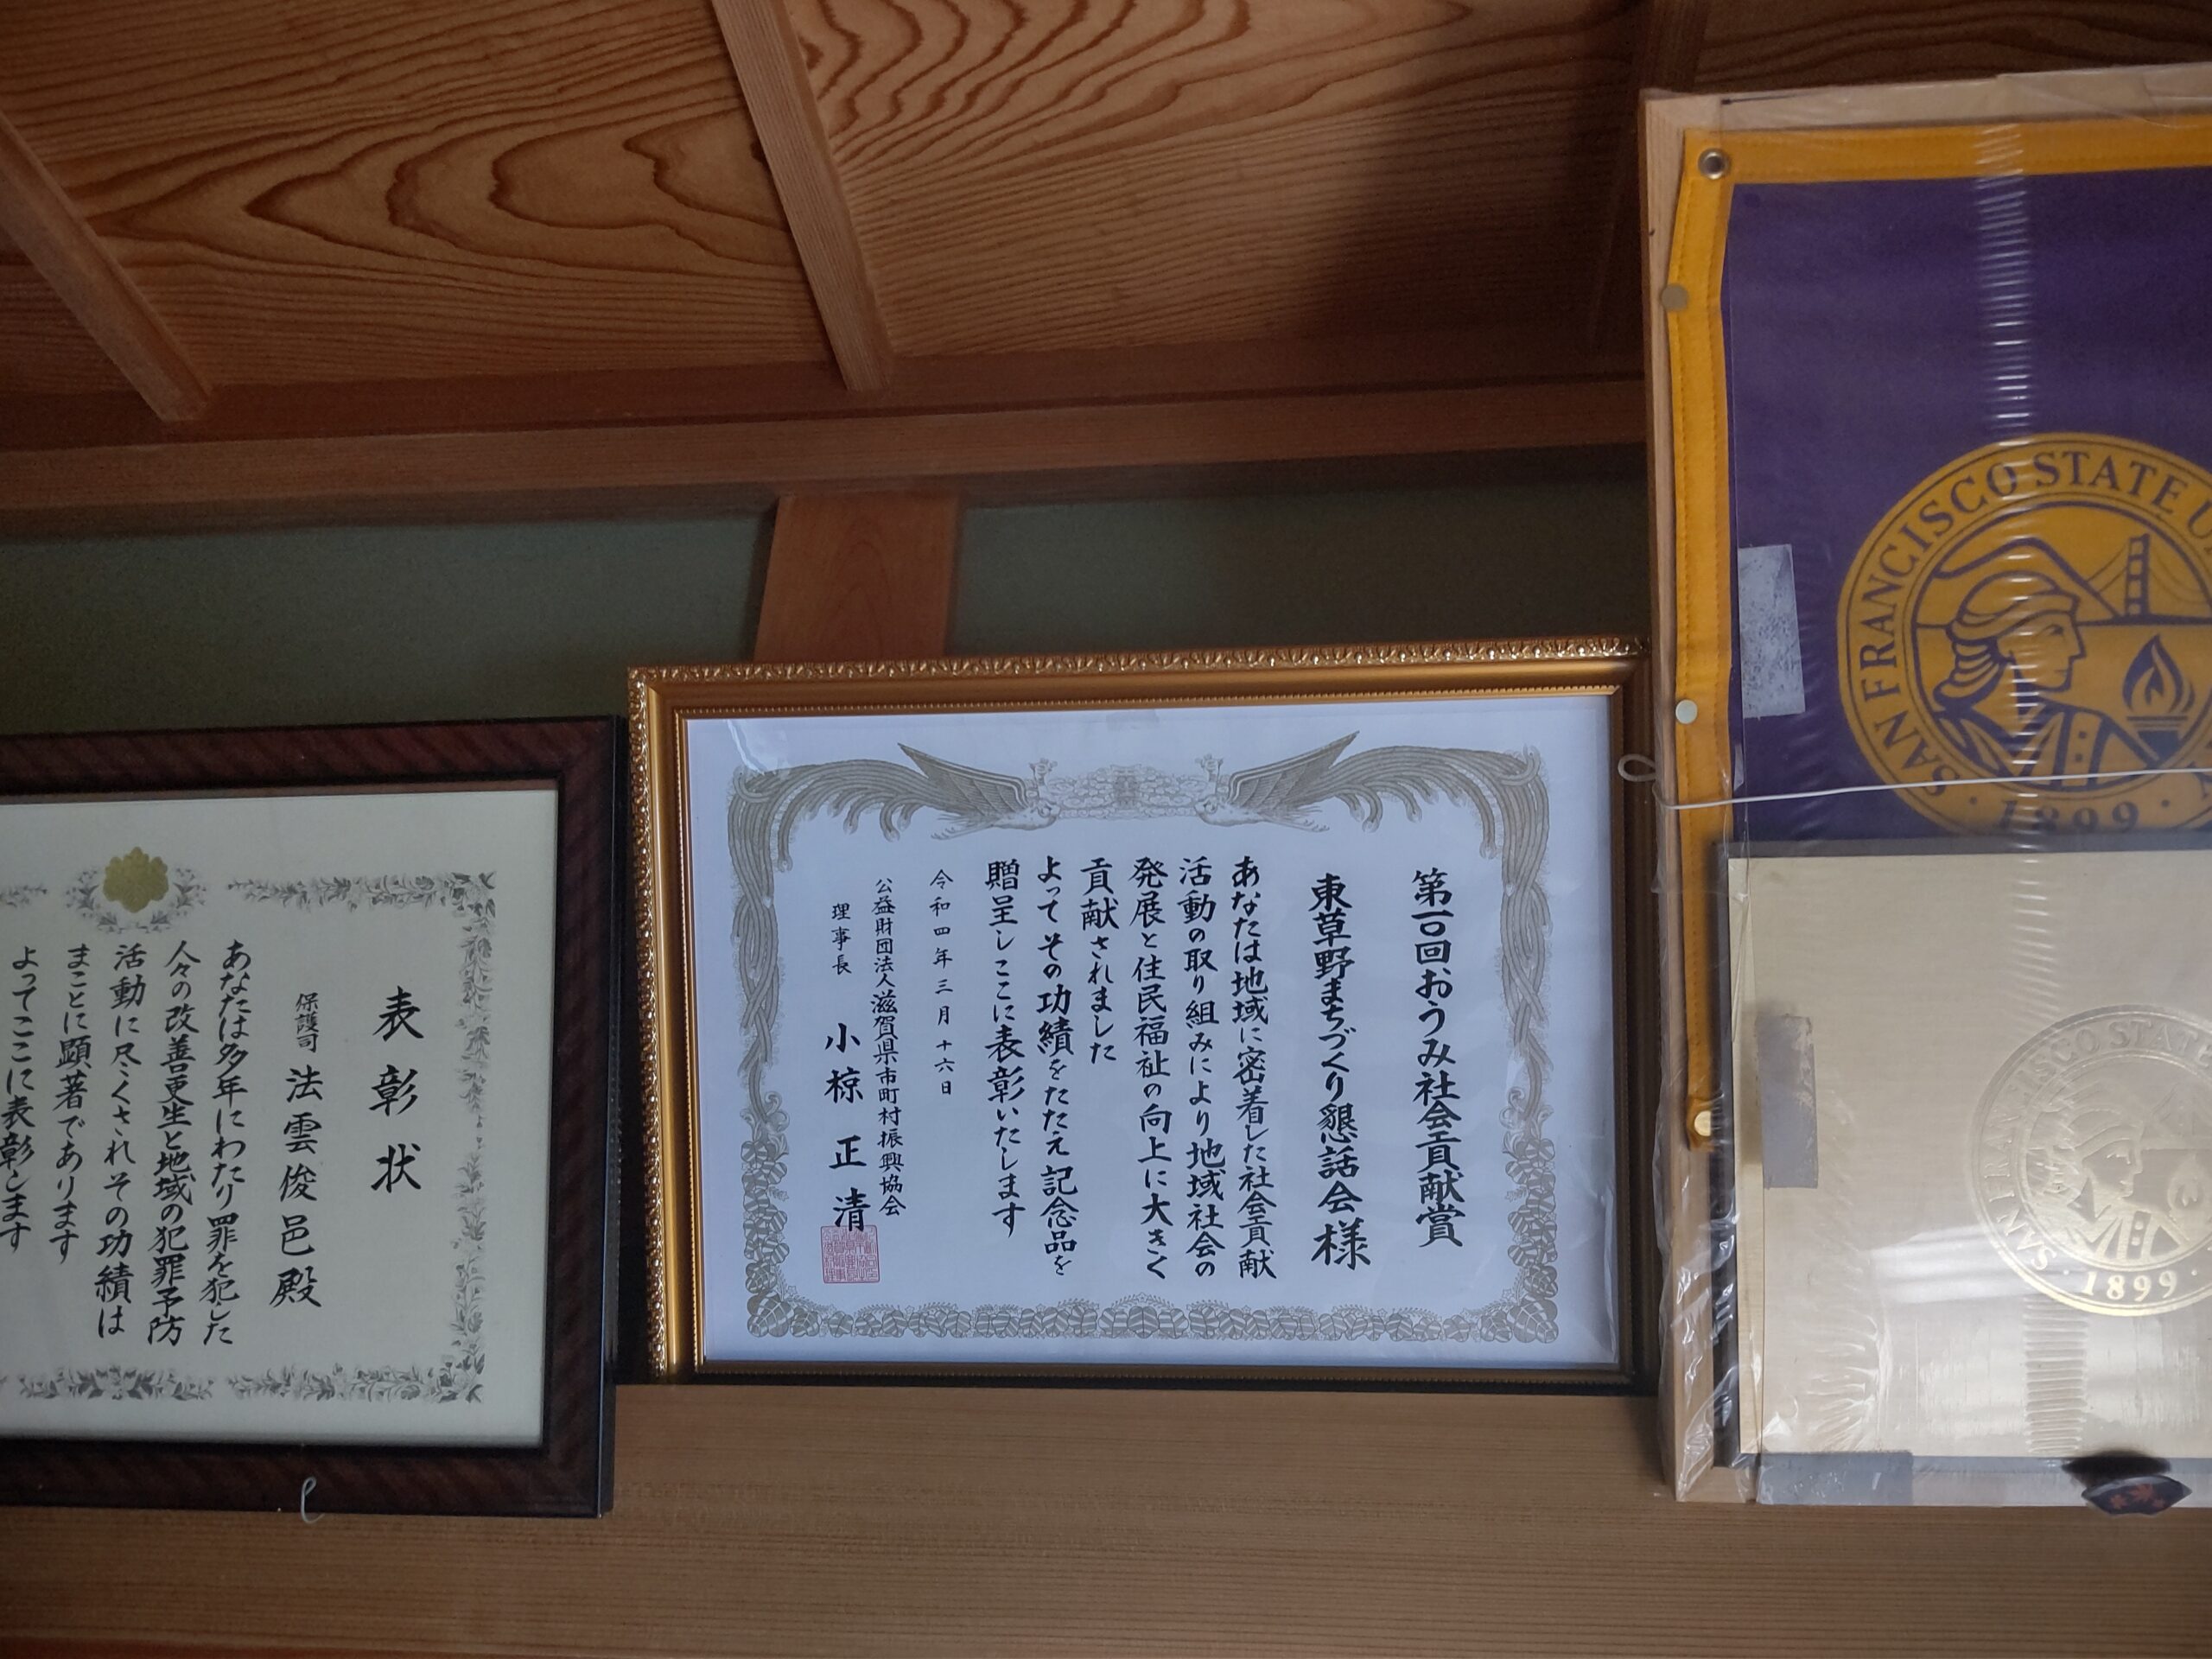 表彰状
保護司 法雲俊邑殿
あなたは多年にわたり罪を犯した
人々の改善更生と地域の犯罪予防
活動に尽くされその功績は
まことに顕著であります
よってここに表彰します
第一〇回おうみ社会貢献賞
東草野まちづくり懇話会様
あなたは地域に密着した社会貢献
活動の取り組みにより地域社会の
発展と住民福祉の向上に大きく
貢献されました
よってその功績をたたえ記念品を
贈呈しここに表彰いたします
令和四年三月十六日
公益財団法人滋賀県市町村振興協会
理事長 小椋正清
SAN FRANCISCO STATE
1899
SAN FRANCISCO STATE
1899